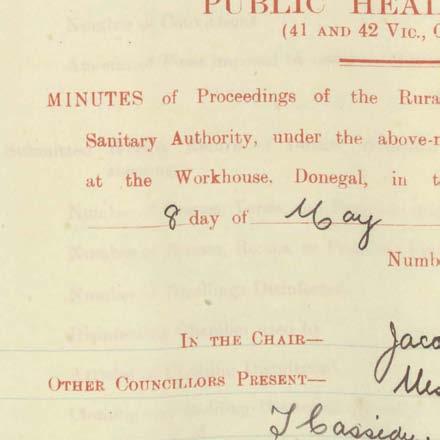 PUBLIC HEAL
(41 AND 42 VIC., C
MINUTES of Proceedings of the Rura
Sanitary Authority, under the above-
at the Workhouse, Donegal, in t
8 day of May
Numb
IN THE CHAIR—
Jaco
OTHER COUNCILLORS PRESENT—
Mes
J Cassidy